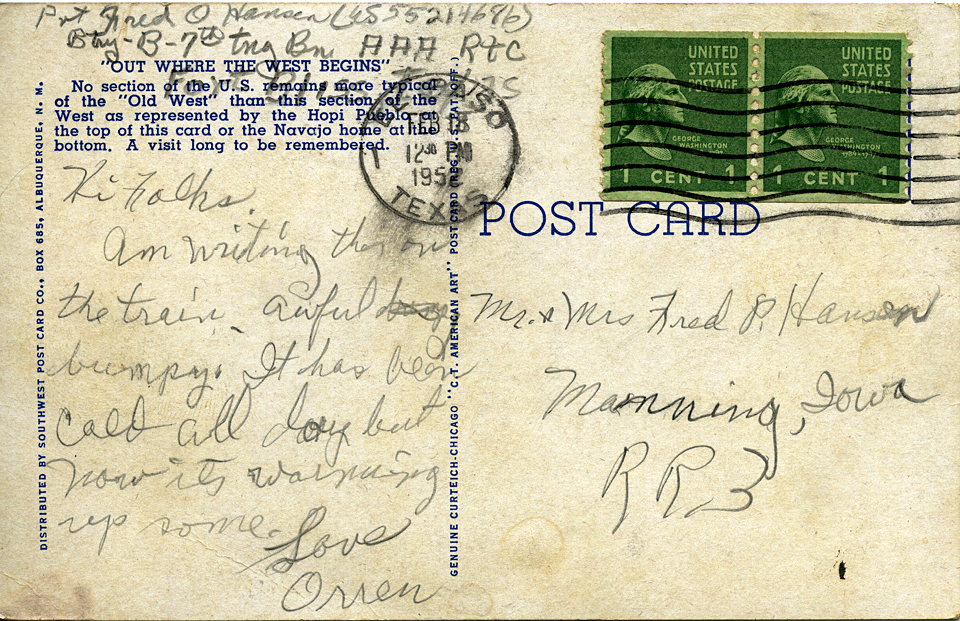 Pvt Fred O Hansen (US55214696)
Btry-B-7th tng Bn. AAA RTC
Fort Bliss Texas
"OUT WHERE THE WEST BEGINS"
No section of the U.S. remains more typical
of the "Old West" than this section of the
West as represented by the Hopi Pueblo at
the top of this card or the Navajo home at the
bottom. A visit long to be remembered.
EL PASO
FEB 18
12 30 PM
1952
TEXAS
1
UNITED
STATES
POSTAGE
GEORGE
WASHINGTON
1 CENT 1
UNITED
STATES
POSTAGE
GEORGE
WASHINGTON
1 CENT 1
POST CARD
Hi Folks
Am writing this on
the train. Awful
bumpy. It has been
cold all day but
now its warming
up some.
Love
Orren
Mr. & Mrs Fred P. Hansen
Mannning, Iowa
RR3
DISTRIBUTED BY SOUTHWEST POST CARD CO., BOX 685, ALBUQUERQUE, N. M.
GENUINE CURTEICH-CHICAGO "C.T. AMERICAN ART" POST CARD (REG. U.S. PAT. OFF.)